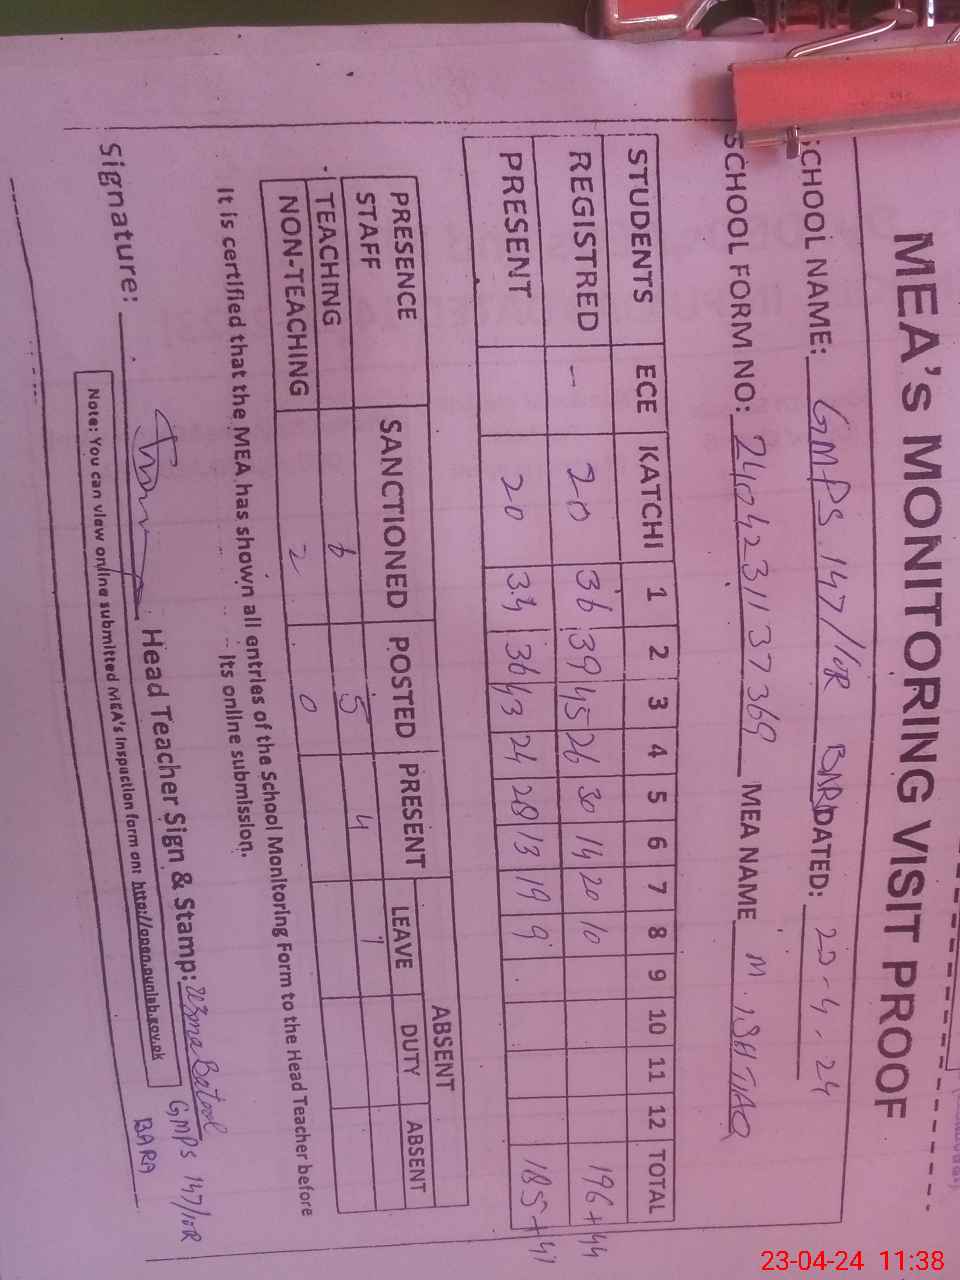 MEA's MONITORING VISIT PROOF
SCHOOL NAME: GMPS 147/10R BARA DATED: 23-4-24
SCHOOL FORM NO: 2404231137369 MEA NAME M. ISHTIAQ
STUDENTS ECE KATCHI 1 2 3 4 5 6 7 8 9 10 11 12 TOTAL
REGISTRED -- 20 36 39 45 26 30 14 20 10 196+44
PRESENT 20 34 36 43 24 28 13 19 9 185+41
PRESENCE STAFF SANCTIONED POSTED PRESENT ABSENT
LEAVE DUTY ABSENT
TEACHING 6 5 4 1
NON-TEACHING 2 0
It is certified that the MEA has shown all entries of the School Monitoring Form to the Head Teacher before
its online submission.
Signature: Head Teacher Sign & Stamp: Uzma Batool
GMPS 147/10R
BARA
Note: You can view online submitted MEA's inspection form on: http://open.punjab.gov.pk
23-04-24 11:38